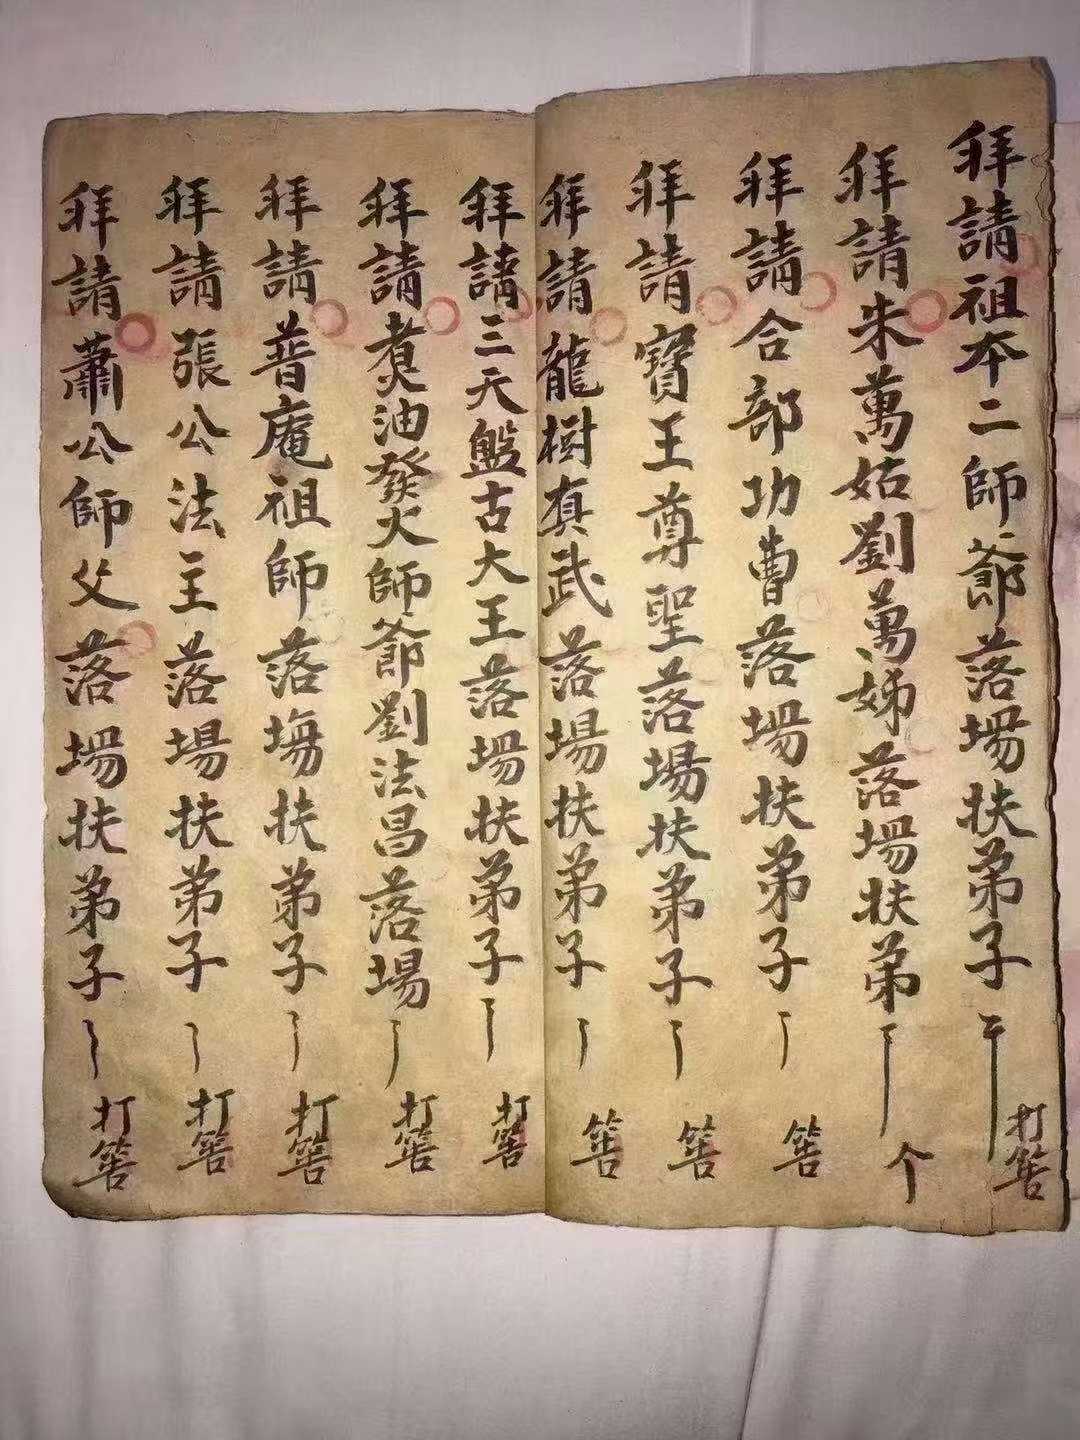 拜請祖本二師爺落場扶弟子 打筶
拜請朱萬姑劉萬姊落場扶弟 个
拜請合部功曹落場扶弟子 筶
拜請寶王尊聖落場扶弟子 筶
拜請龍樹真武落場扶弟子 筶
拜請三天盤古大王落場扶弟子 打筶
拜請煑油發火師爺劉法昌落場 打筶
拜請普庵祖師落塲扶弟子 打筶
拜請張公法主落場扶弟子 打筶
拜請蕭公師父落場扶弟子 打筶